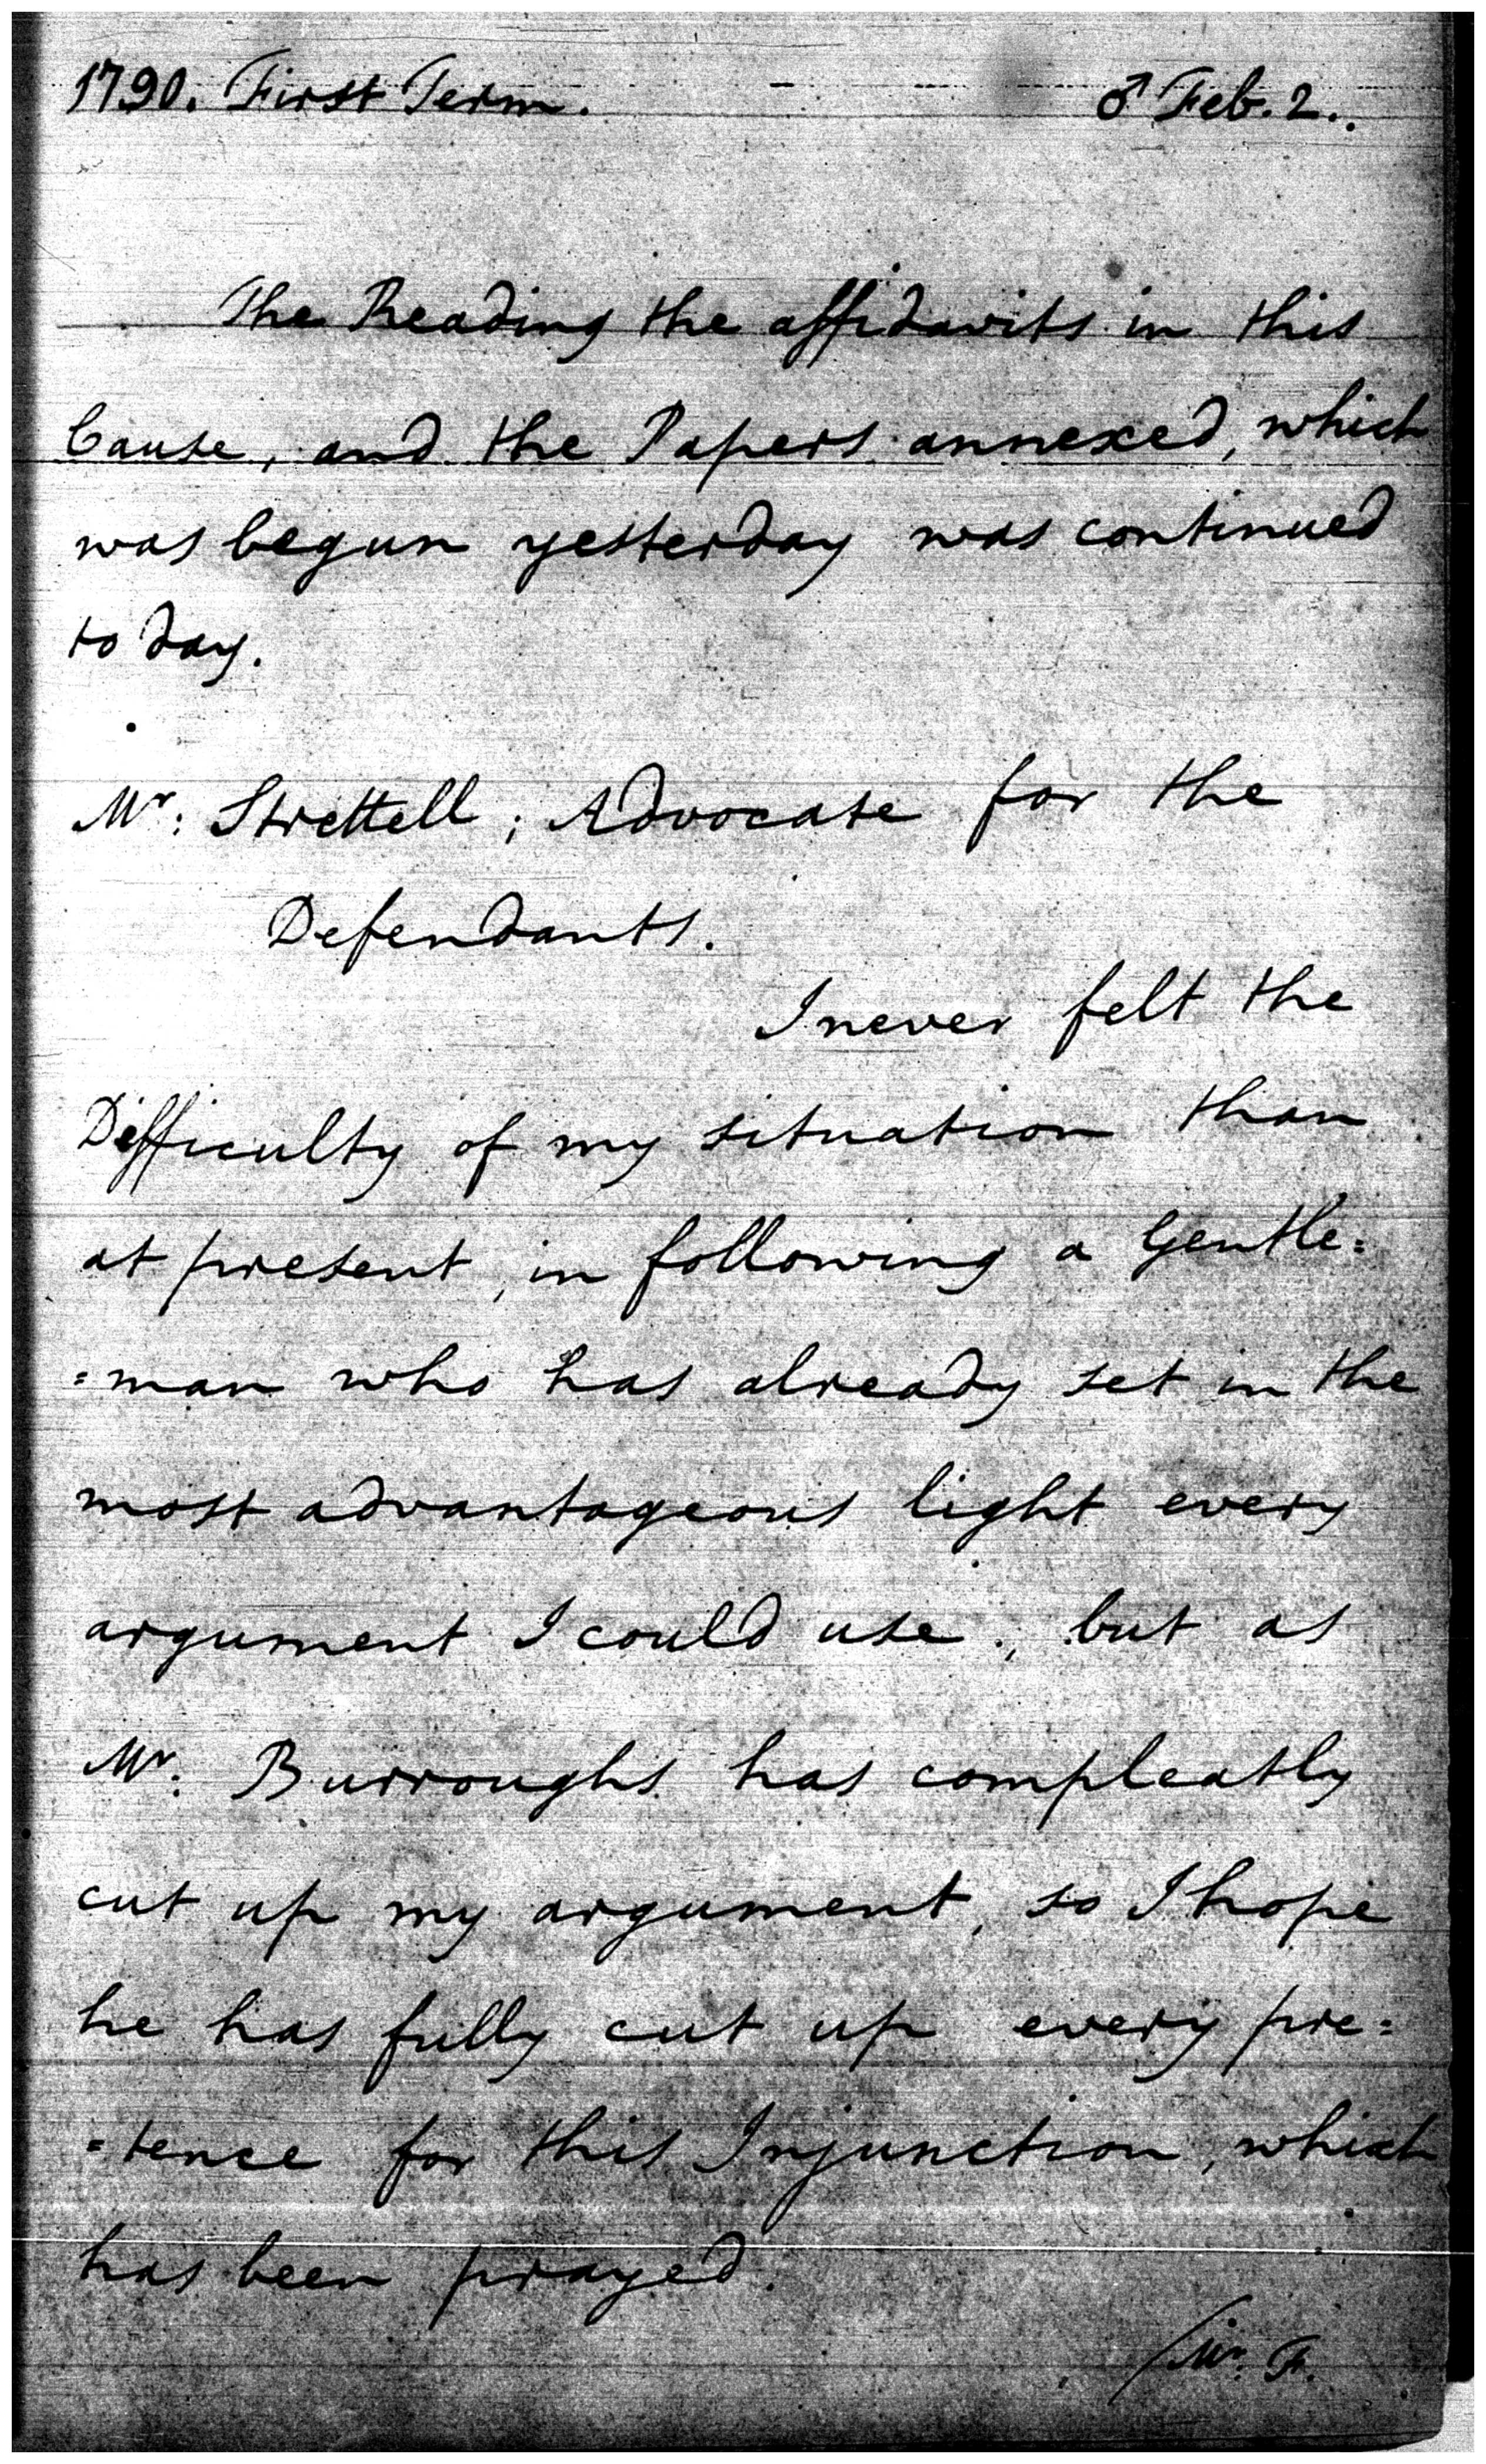 1790. First Term. - ♂ Feb. 2..
The Reading the affidavits in this
Cause, and the Papers annexed, which
was begun yesterday was continued
to day.
Mr: Strettell; Advocate for the
Defendants.
I never felt the
Difficulty of my situation than
at present, in following a Gentle=
=man who has already set in the
most advantageous light every
argument I could use; but as
Mr. Burroughs has compleatly
cut up my argument, so I hope
he has fully cut up every pre=
=tence for this Injunction, which
has been prayed.
/Mr. F.